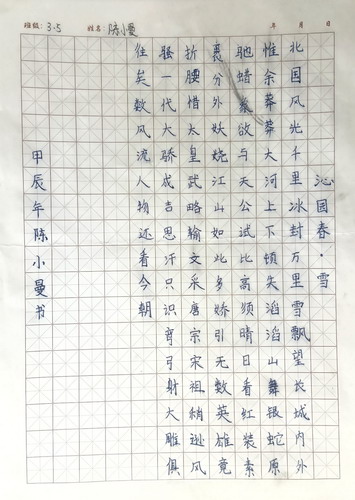 班级: 3.5 姓名: 陈小曼 年 月 日
沁园春·雪
北国风光千里冰封万里雪飘望长城内外
惟余莽莽大河上下顿失滔滔山舞银蛇原
驰蜡象欲与天公试比高须晴日看红装素
裹分外妖娆江山如此多娇引无数英雄竟
折腰惜太皇武略输文采唐宗宋祖稍逊风
骚一代大骄成吉思汗只识弯弓射大雕俱
往矣数风流人物还看今朝
甲辰年陈小曼书